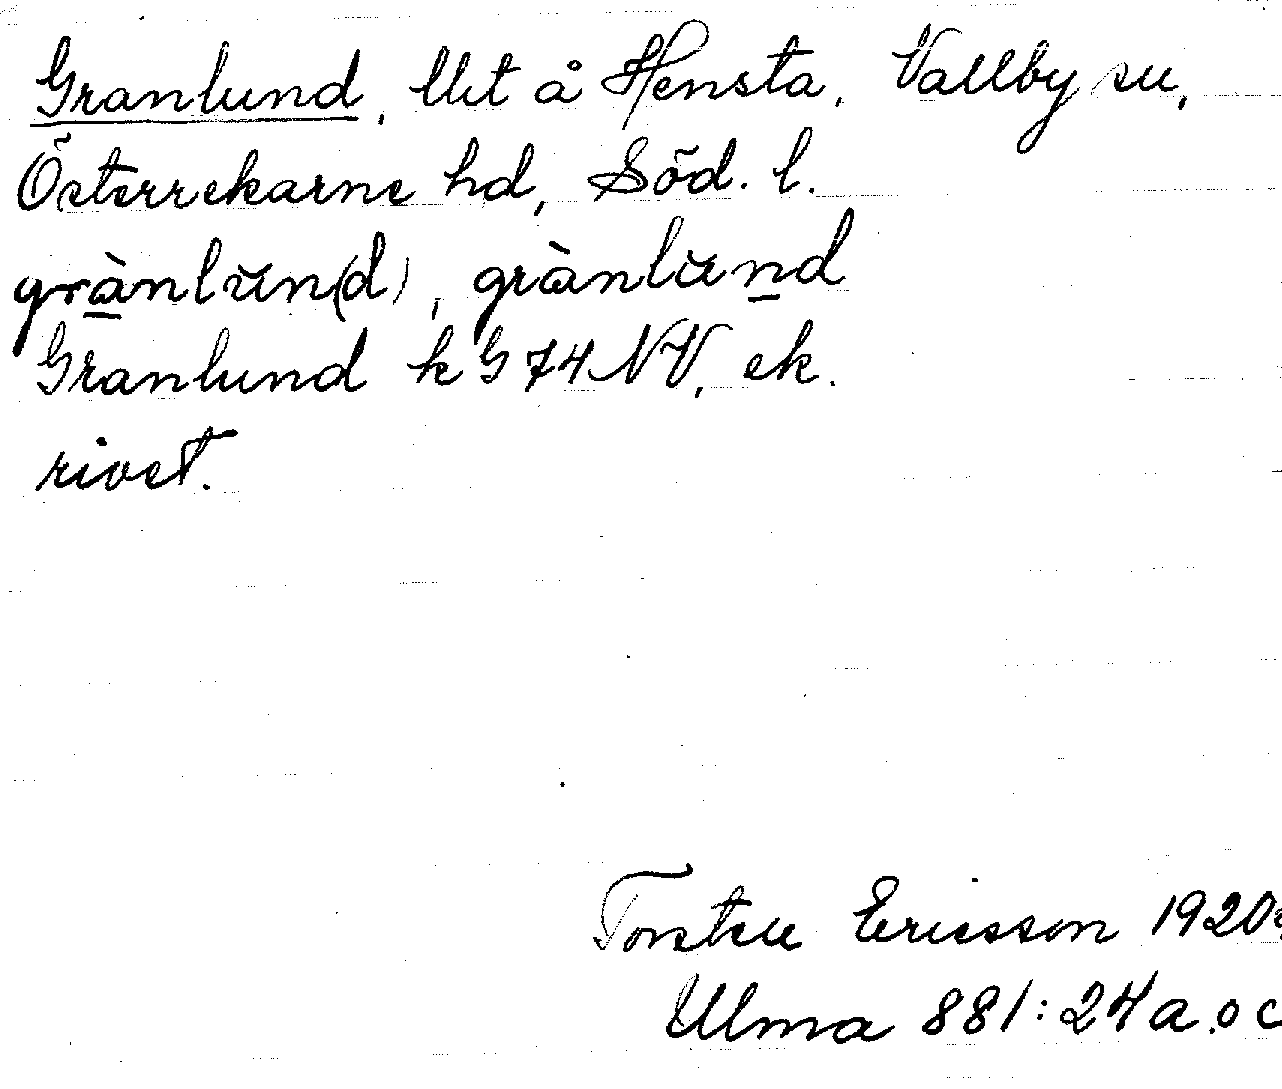 Granlund, Ut å Hensta, Vallby sn,
Österrekarne hd, Söd. l.
grànlŭn(d), grànlŭnd
Granlund k G 74 NV, ek.
rivet.
Torsten Ericsson 1920
Ulma 881:24 a. o c